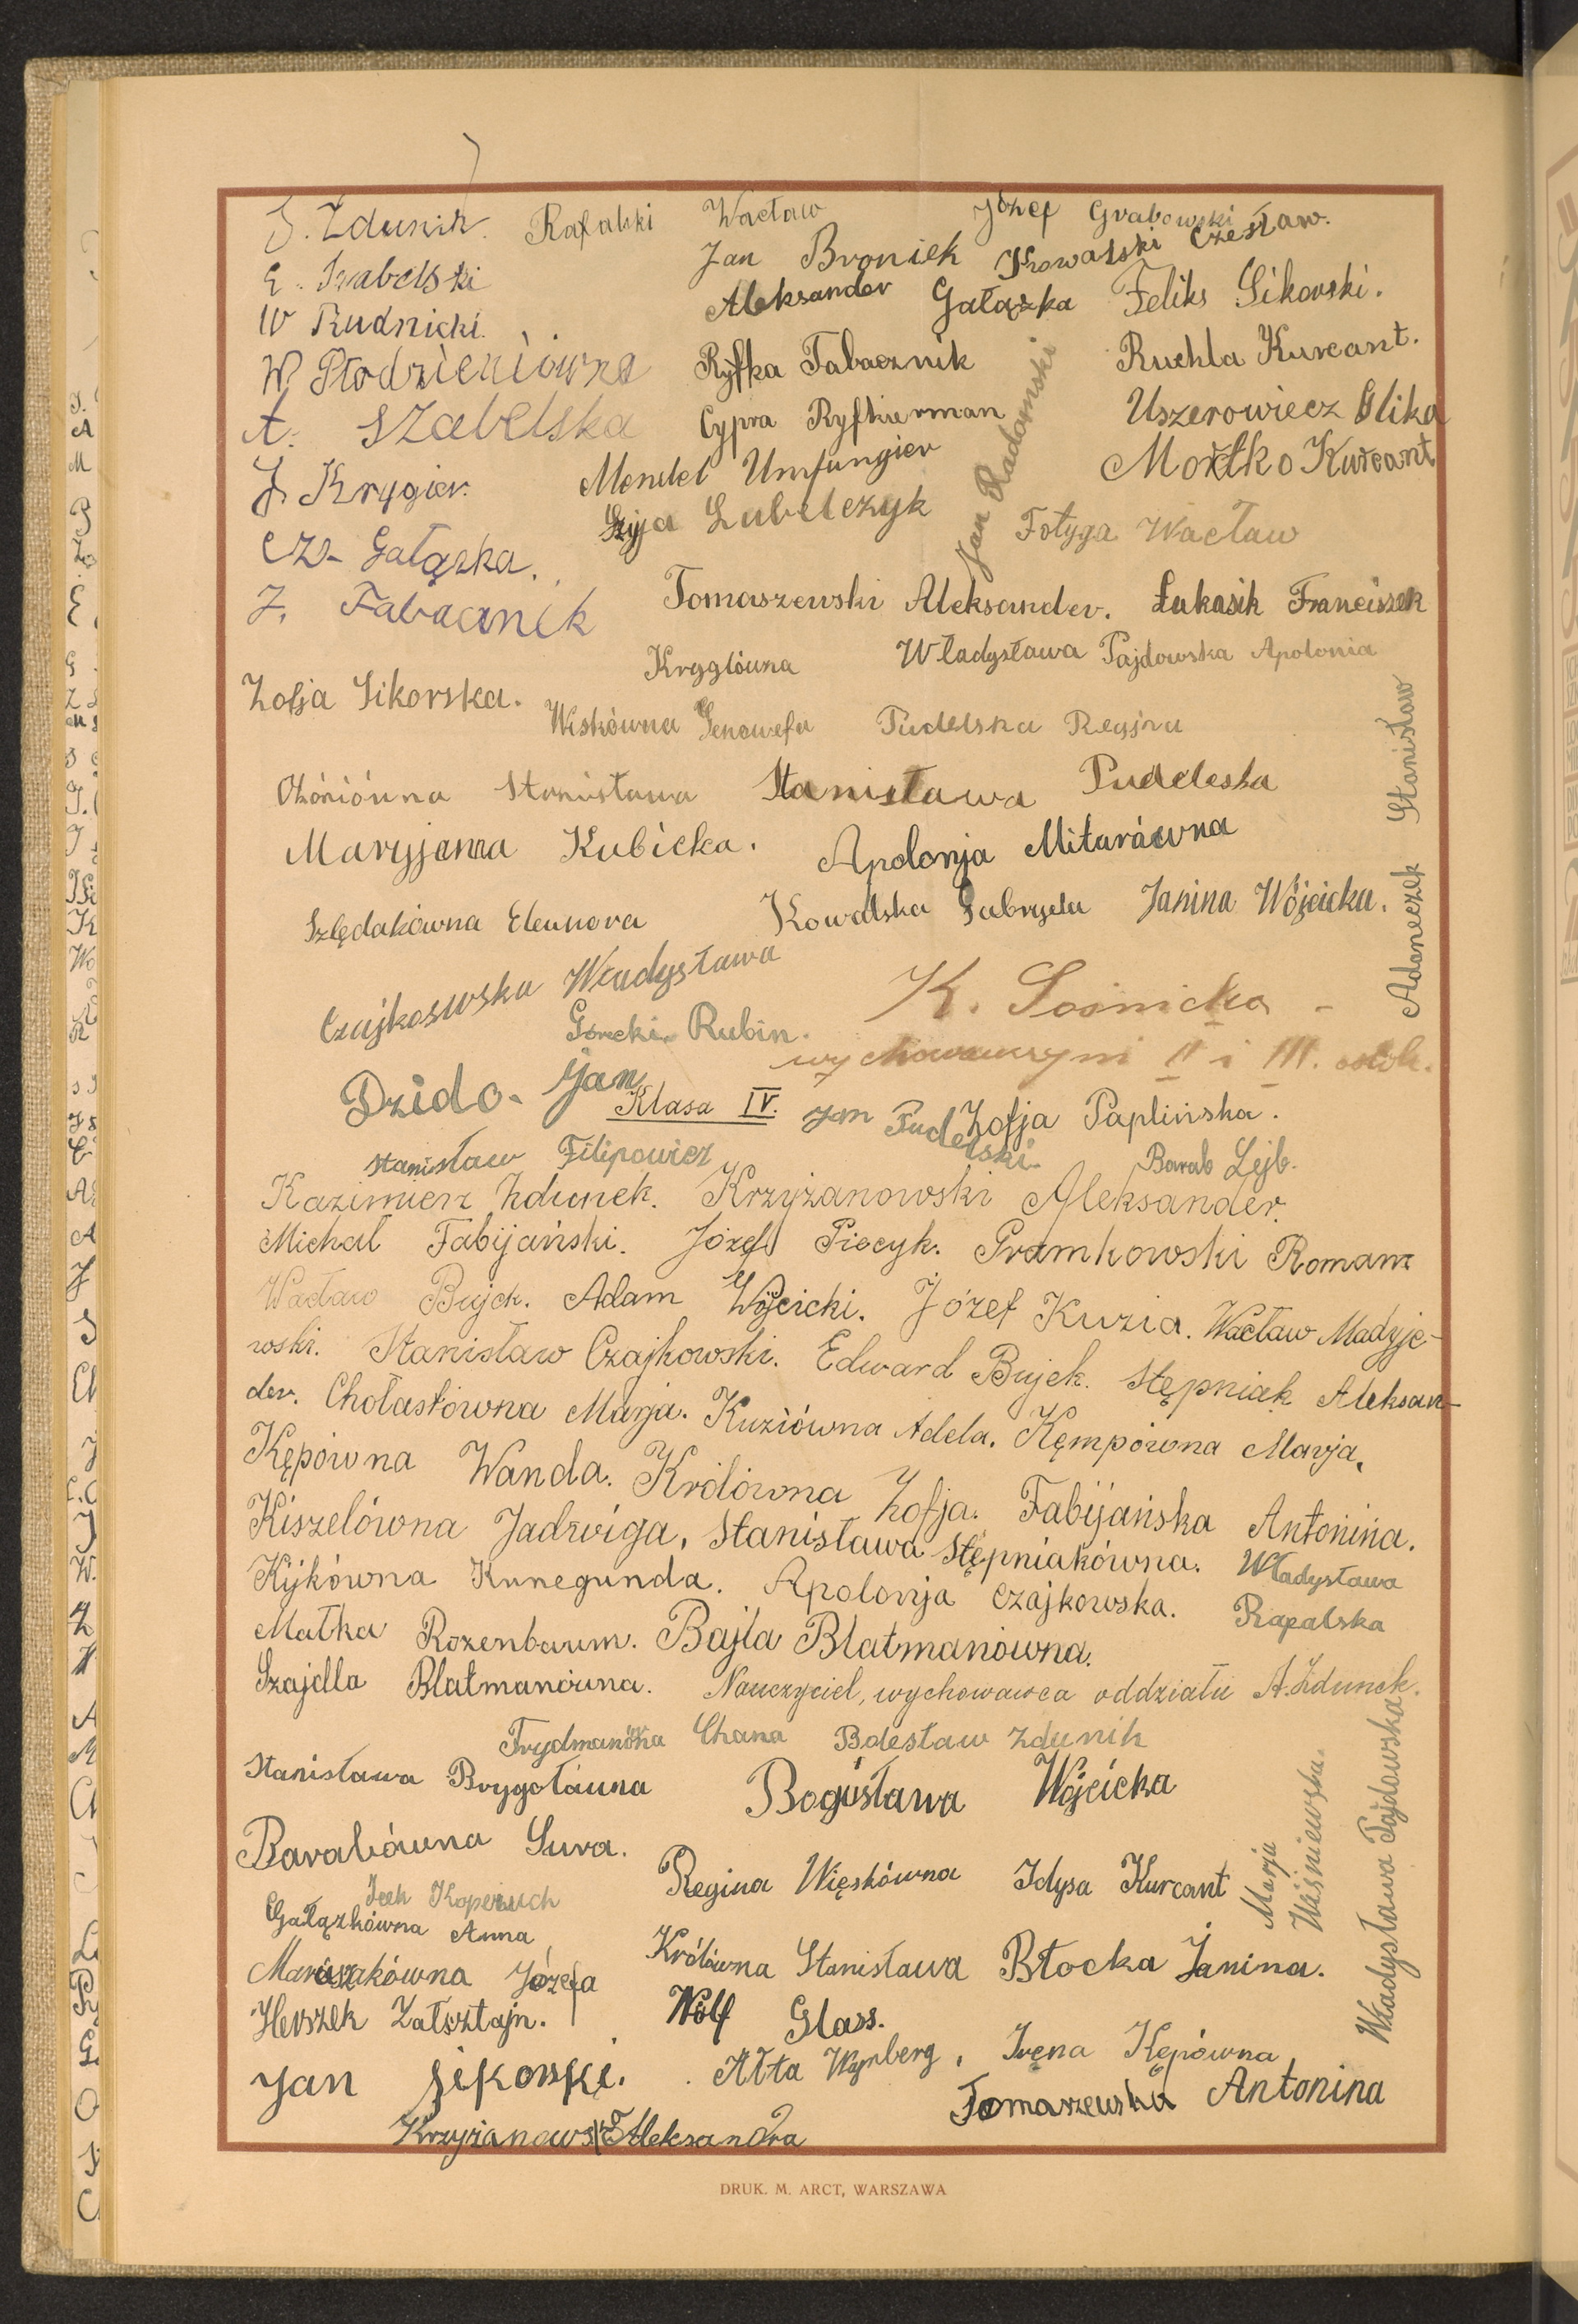 S. Zdunik. Rafalski Wacław Józef Grabowski
E. Szabelski Jan Broniek Kowalski Czesław.
W Rudnicki. Aleksander Gałązka Feliks Sikorski.
W Płodzieniówna Ryfka Tabacznik Ruchla Kurcant.
A. Szabelska Cypra Ryfkierman Uszerowiecz Glika
J. Krygier. Mendel Umfungier Mosztko Kurcant
Jan Radomski
Cz. Gałązka. Szyja Lubelczyk Fotyga Wacław
J. Tabacznik Tomaszewski Aleksander. Łukasik Franciszek
Kryglówna Władysława Pajdowska Apolonia
Zofja Sikorska.
Wiskówna Genowefa Pudelska Regina
Ozóniówna Stanisława Stanisława Puddeska
Maryjanna Kubicka. Apolonja Mitarówna
Adoneczek Stanisław
Szlędakówna Eleunora Kowalska Gabryela Janina Wójcicka.
Czajkowska Władysława K. Sośnicka -
Górecki Rubin. wychowawczyni II i III. oddz.
Dzido. Jan
Klasa IV. Jan Pudelski Zofja Paplińska.
Stanisław Filipowicz Barab Lejb.
Kazimierz Zdunek. Krzyżanowski Aleksander.
Michał Fabijański. Józef Piecyk. Pramkowski Roman
Wacław Bujek. Adam Wójcicki. Józef Kuzia. Wacław Madyje-
wski. Stanisław Czajkowski. Edward Bujek. Stępniak Aleksan-
der. Chołastówna Marja. Kuziówna Adela. Kęmpówna Marja,
Kępówna Wanda. Królówna Zofja. Fabijańska Antonina.
Kiszelówna Jadwiga, Stanisława Stępniakówna. Władysława
Kijkówna Kunegunda. Apolonja Czajkowska. Rapalska
Małka Rozenbaum. Bajla Blatmanówna.
Szajdla Blatmanówna. Nauczyciel, wychowawca oddziału A. Zdunek.
Frydmanówna Chana Bolesław Zdunik
Stanisława Brygołówna Bogusława Wójcicka
Barabówna Sura.
Regina Więskówna Idysa Kurcant
Marja Wiśniewska.
Władysława Pajdowska
Icek Koperuch
Gałązkówna Anna
Królówna Stanisława Błocka Janina.
Marciszakówna Józefa
Herszek Załsztajn. Wolf Glass.
Jan Sikorski. Ałta Wajnberg, Irena Kępówna
Tomaszewska Antonina
Krzyżanowska Aleksandra
DRUK. M. ARCT, WARSZAWA